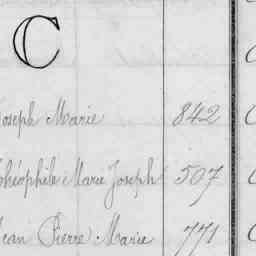 C
Joseph Marie 842
Théophile Marie Joseph 507
Jean Pierre Marie 771